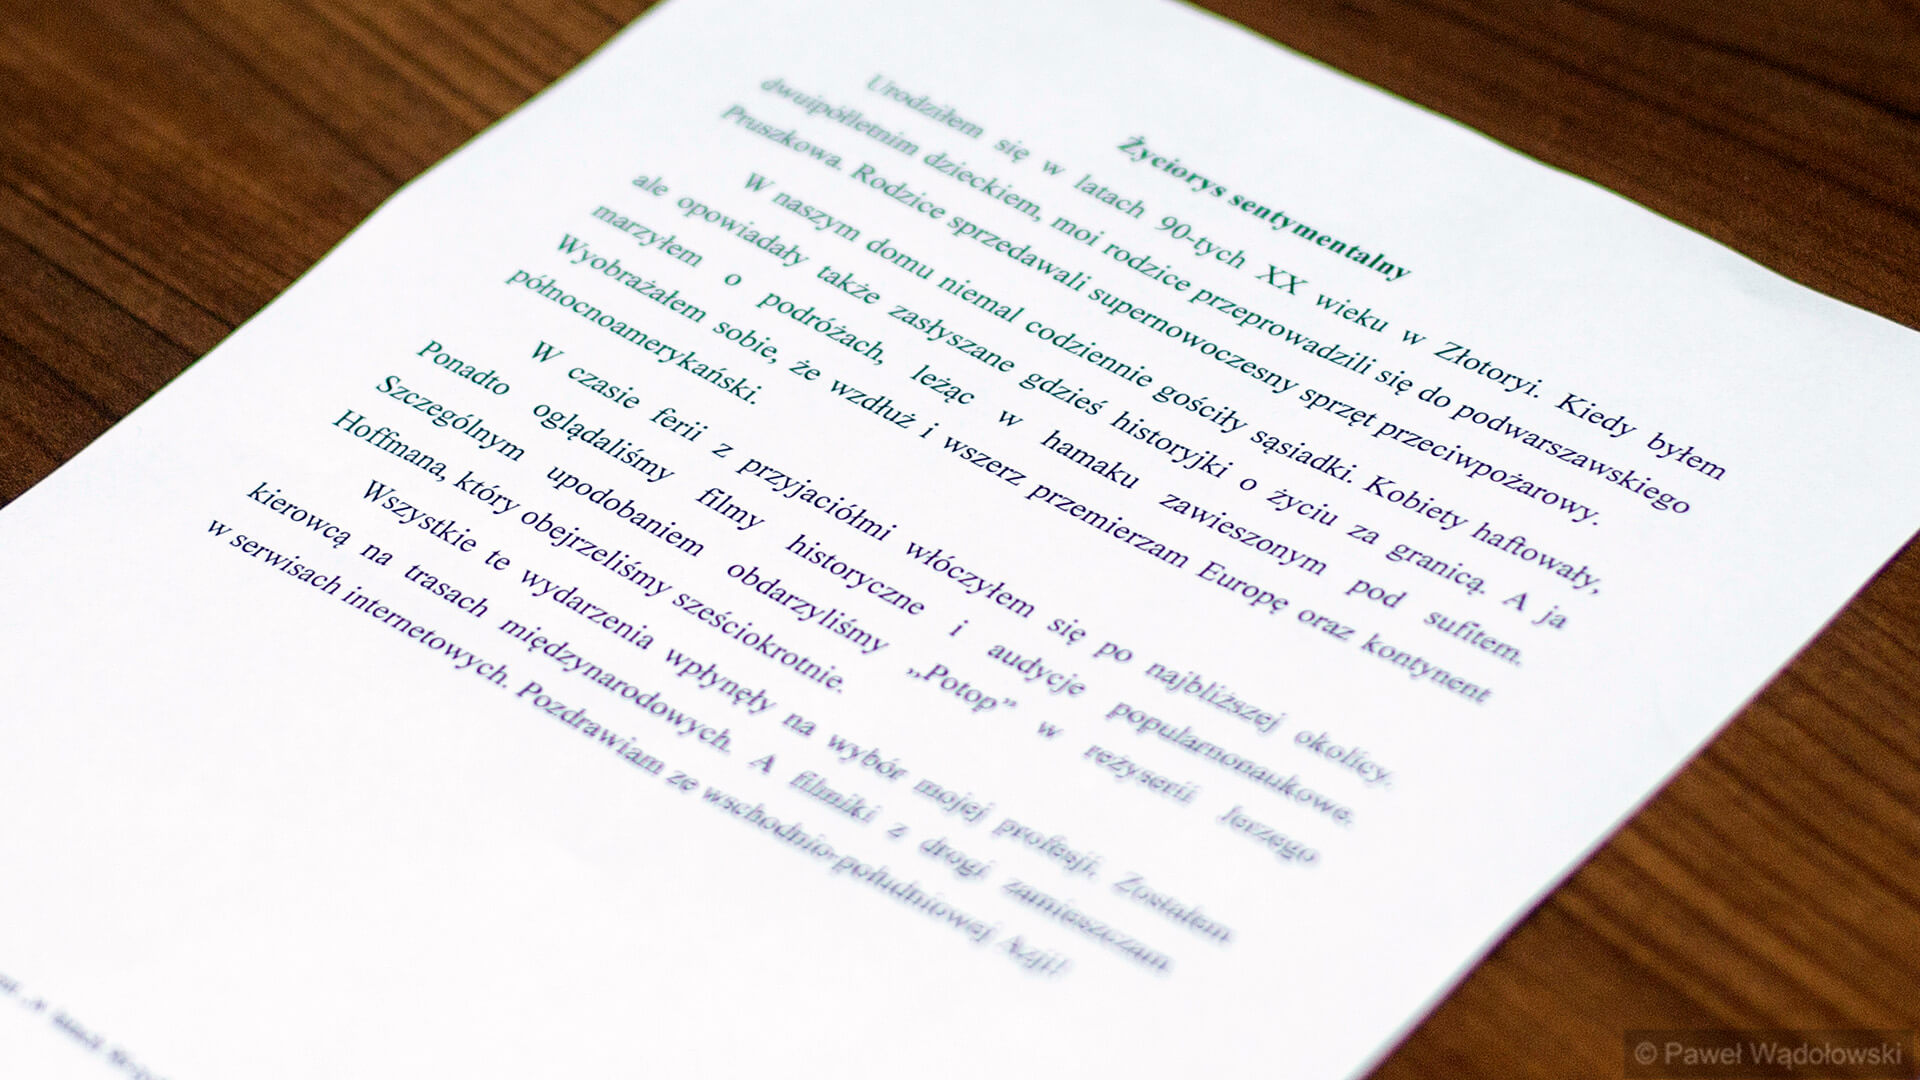 Życiorys sentymentalny
Urodziłem się w latach 90-tych XX wieku w Złotoryi. Kiedy byłem
dwuipółletnim dzieckiem, moi rodzice przeprowadzili się do podwarszawskiego
Pruszkowa. Rodzice sprzedawali supernowoczesny sprzęt przeciwpożarowy.
W naszym domu niemal codziennie gościły sąsiadki. Kobiety haftowały,
ale opowiadały także zasłyszane gdzieś historyjki o życiu za granicą. A ja
marzyłem o podróżach, leżąc w hamaku zawieszonym pod sufitem.
Wyobrażałem sobie, że wzdłuż i wszerz przemierzam Europę oraz kontynent
północnoamerykański.
W czasie ferii z przyjaciółmi włóczyłem się po najbliższej okolicy.
Ponadto oglądaliśmy filmy historyczne i audycje popularnonaukowe.
Szczególnym upodobaniem obdarzyliśmy „Potop” w reżyserii Jerzego
Hoffmana, który obejrzeliśmy sześciokrotnie.
Wszystkie te wydarzenia wpłynęły na wybór mojej profesji. Zostałem
kierowcą na trasach międzynarodowych. A filmiki z drogi zamieszczam
w serwisach internetowych. Pozdrawiam ze wschodnio-południowej Azji!
© Paweł Wądołowski